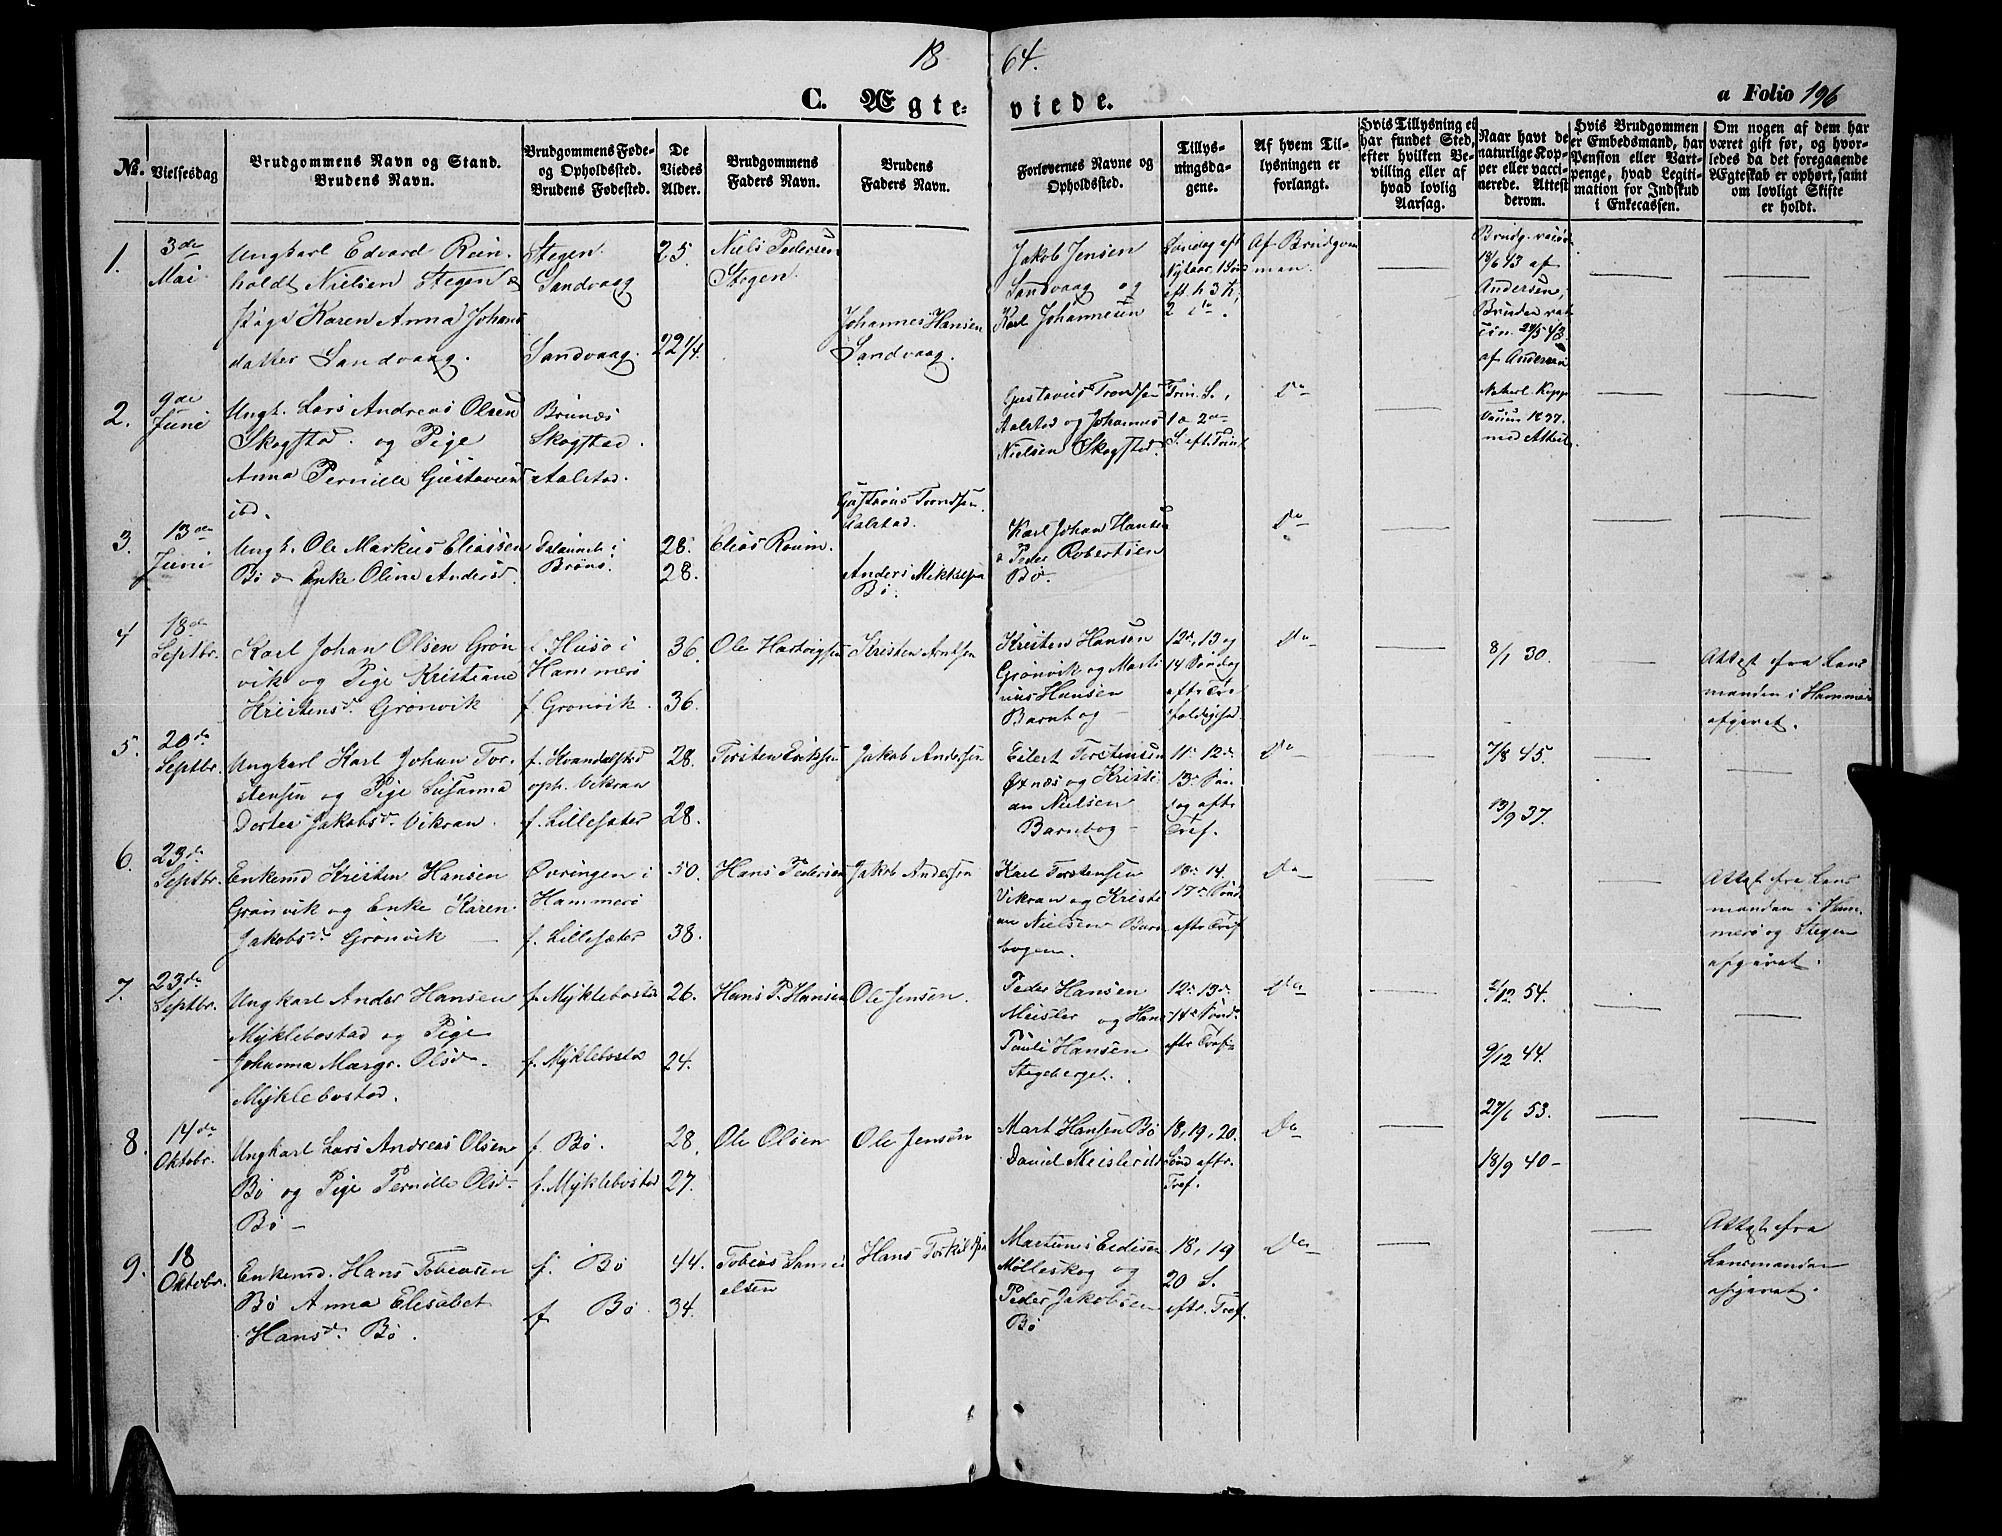 18 64.
C. Ægte- viede.
a Folio 196
No.
Vielsesdag
Brudgommens Navn og Stand.
Brudens Navn.
Brudgommens Føde-
og Opholdssted.
Brudens Fødested.
De
Viedes
Alder.
Brudgommens
Faders Navn.
Brudens
Faders Navn.
Forlovernes Navne og
Opholdssted.
Tillys-
ningsda-
gene.
Af hvem Til-
lysningen er
forlangt.
Hvis Tillysning ei
har fundet Sted,
efter hvilken Be-
villing eller af
hvad lovlig
Aarsag.
Naar havt de
naturlige Kop-
per eller vacci-
nerede. Attest
derom.
Hvis Brudgommen
er Embedsmand, har
Pension eller Vart-
penge, hvad Legiti-
mation for Indskud
i Enkecassen.
Om nogen af dem har
været gift før, og hvor-
ledes da det foregaaende
Ægteskab er ophørt, samt
om lovligt Skifte
er holdt.
1.
3de
Mai
Ungkarl Edvard Rein-
holdt Nielsen Stegen &
Pige Karen Anna Johans
datter Sandvaag.
Stegen
Sandvaag
Sandvaag.
25.
22 1/4.
Niels Pedersen
Stegen.
Johannes Hansen
Sandvaag.
Jakob Jensen
Sandvaag og
Karl Johannesen
Søndag eft
Nytaar, 1 Sønd
eft. h 3 K,
2 do.
Af Brudgom
man.
Brudg. vacc
18/6 43 af
Andersen,
Bruden vac
cin. 24/5 43
af Andersen
2.
9de
Juni
Ungk. Lars Andreas Olsen
Skogstad. og Pige
Anna Pernille Gustavsen
ibd.
Brunæs
Skogstad.
Aalstad.
Gustavus Trondsen.
Aalstad.
Gustavus Trondsen
Aalstad og Johannes
Nielsen Skogstad.
Trin. S.,
1 a 2den
S. eft. Trinit
Do
Naturl. Kopp
Vaccin 1837.
med Attest.
3.
13de
Juni
Ungk. Ole Markus Eliassen
Bø & Enke Oline Andersd.
i
28.
28.
Elias
Anders Mikkelsen
Bø.
Karl Johan Hansen
& Peder Robertsen
Bø.
Do
4
18de
Septbr.
Karl Johan Olsen Grøn
vik og Pige Kristiane
Kristensd. Grønvik
f. Husø i
Hammerø
f. Grønvik.
36.
36.
Ole Hartvigsen
Kristen Antsen
Kristen Hansen
Grønvik og Marti
nus Hansen
Barnt og -
12te, 13 og
14 Søndag
eftr Tre
foldighed.
Do
8/1 30.
Attest fra Lens
manden i Hammer
afgivet.
5.
20de
Septbr.
Ungkarl Karl Johan Tor-
stensen og Pige Susanna
Dortea Jakobsd. Vikran.
f. Kvandalstad
oph. Vikran
f. Lillesæter
28.
28.
Torsten Eriksen
Jakob Andersen
Eilert Torstensen
Øxnæs og Kristi
an Nielsen
Barnbog -
11te 12te
13de Søn
dag eftr
Tref.
Do
7/8 45.
13/9 37.
6.
23de
Septbr.
Enkemd Kristen Hansen
Grønvik og Enke Karen
Jakobsd. Grønvik
Ovringen i
Hammerø
f. Lillesæter
50.
38.
Hans Pedersen
Jakob Andersen
Karl Torstensen
Vikran og Kristi
an Nielsen Barn
bogen.
14.
17de Sønd
eftr Tref
Do
Attest fra Lens
manden i Ham-
merø og Stegen
afgivet.
7.
23de
Septbr.
Ungkarl Ander Hansen
Myklebostad og Pige
Johanna Margr. Olsd.
Myklebostad.
f. Myklebostad
f. Myklebostad
26.
24.
Hans P. Hansen
Ole Jensen.
Peder Hansen
Meisler og Hans
Pauli Hansen
Stegeberget.
12te 13de.
14de Sønd.
eftr Tref-
Do
2/12 54.
9/12 44.
8.
14de
Oktobr.
Ungkarl Lars Andreas Olsen
Bø og Pige Pernille Olsd.
Bø -
f. Bø.
f. Myklebostad
28.
27.
Ole Olsen
Ole Jensen
Mart Hansen Bø
David Meisler ibd
18, 19, 20.
Sønd eftr.
Tref.
Do
27/6 53.
18/9 40-
9.
18
Oktobr.
Enkemd. Hans Tobiassen
Bø Anna Elisabet
Hansd. Bø.
f. Bø
f Bø.
44.
34.
Tobias Samu
elsen
Hans Torkilsen
Martinus Edisen
Mølleskog og
Peder Jakobsen
Bø
18, 19
20 S.
eftr. Tref.
Do
Attest fra
Lensmanden
afgivet.